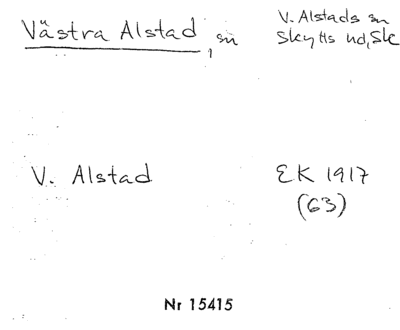 Västra Alstad, sn
V. Alstads sn
Skytts hd, Sk
V. Alstad
EK 1917
(63)
Nr 15415